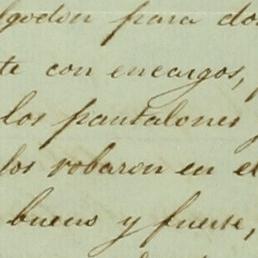 lgodon para do
te con encargos,
los pantalones
los robaron en el
bueno y fuerte,